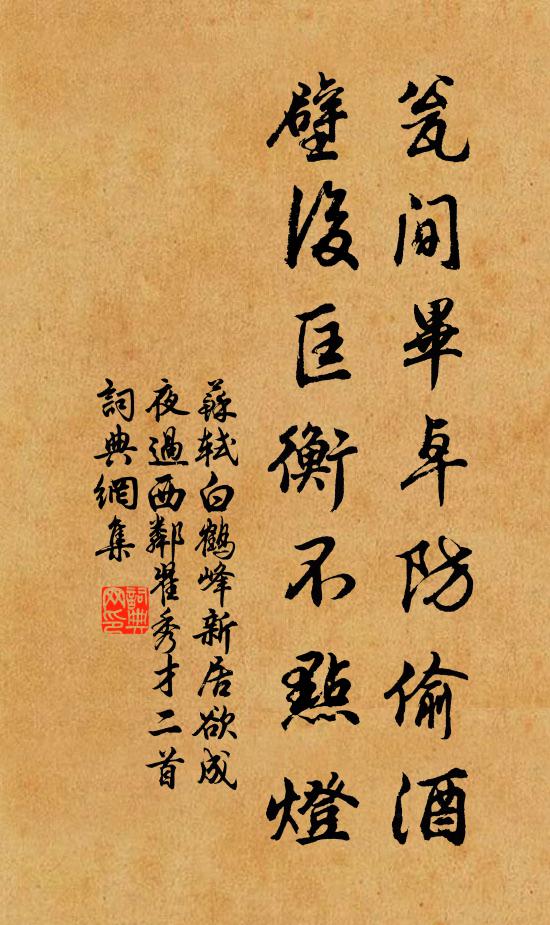 瓮間畢卓防偷酒
壁後匡衡不點燈
蘇軾白鶴峰新居欲成
夜過西鄰翟秀才二首
詞典網集
詞典網印